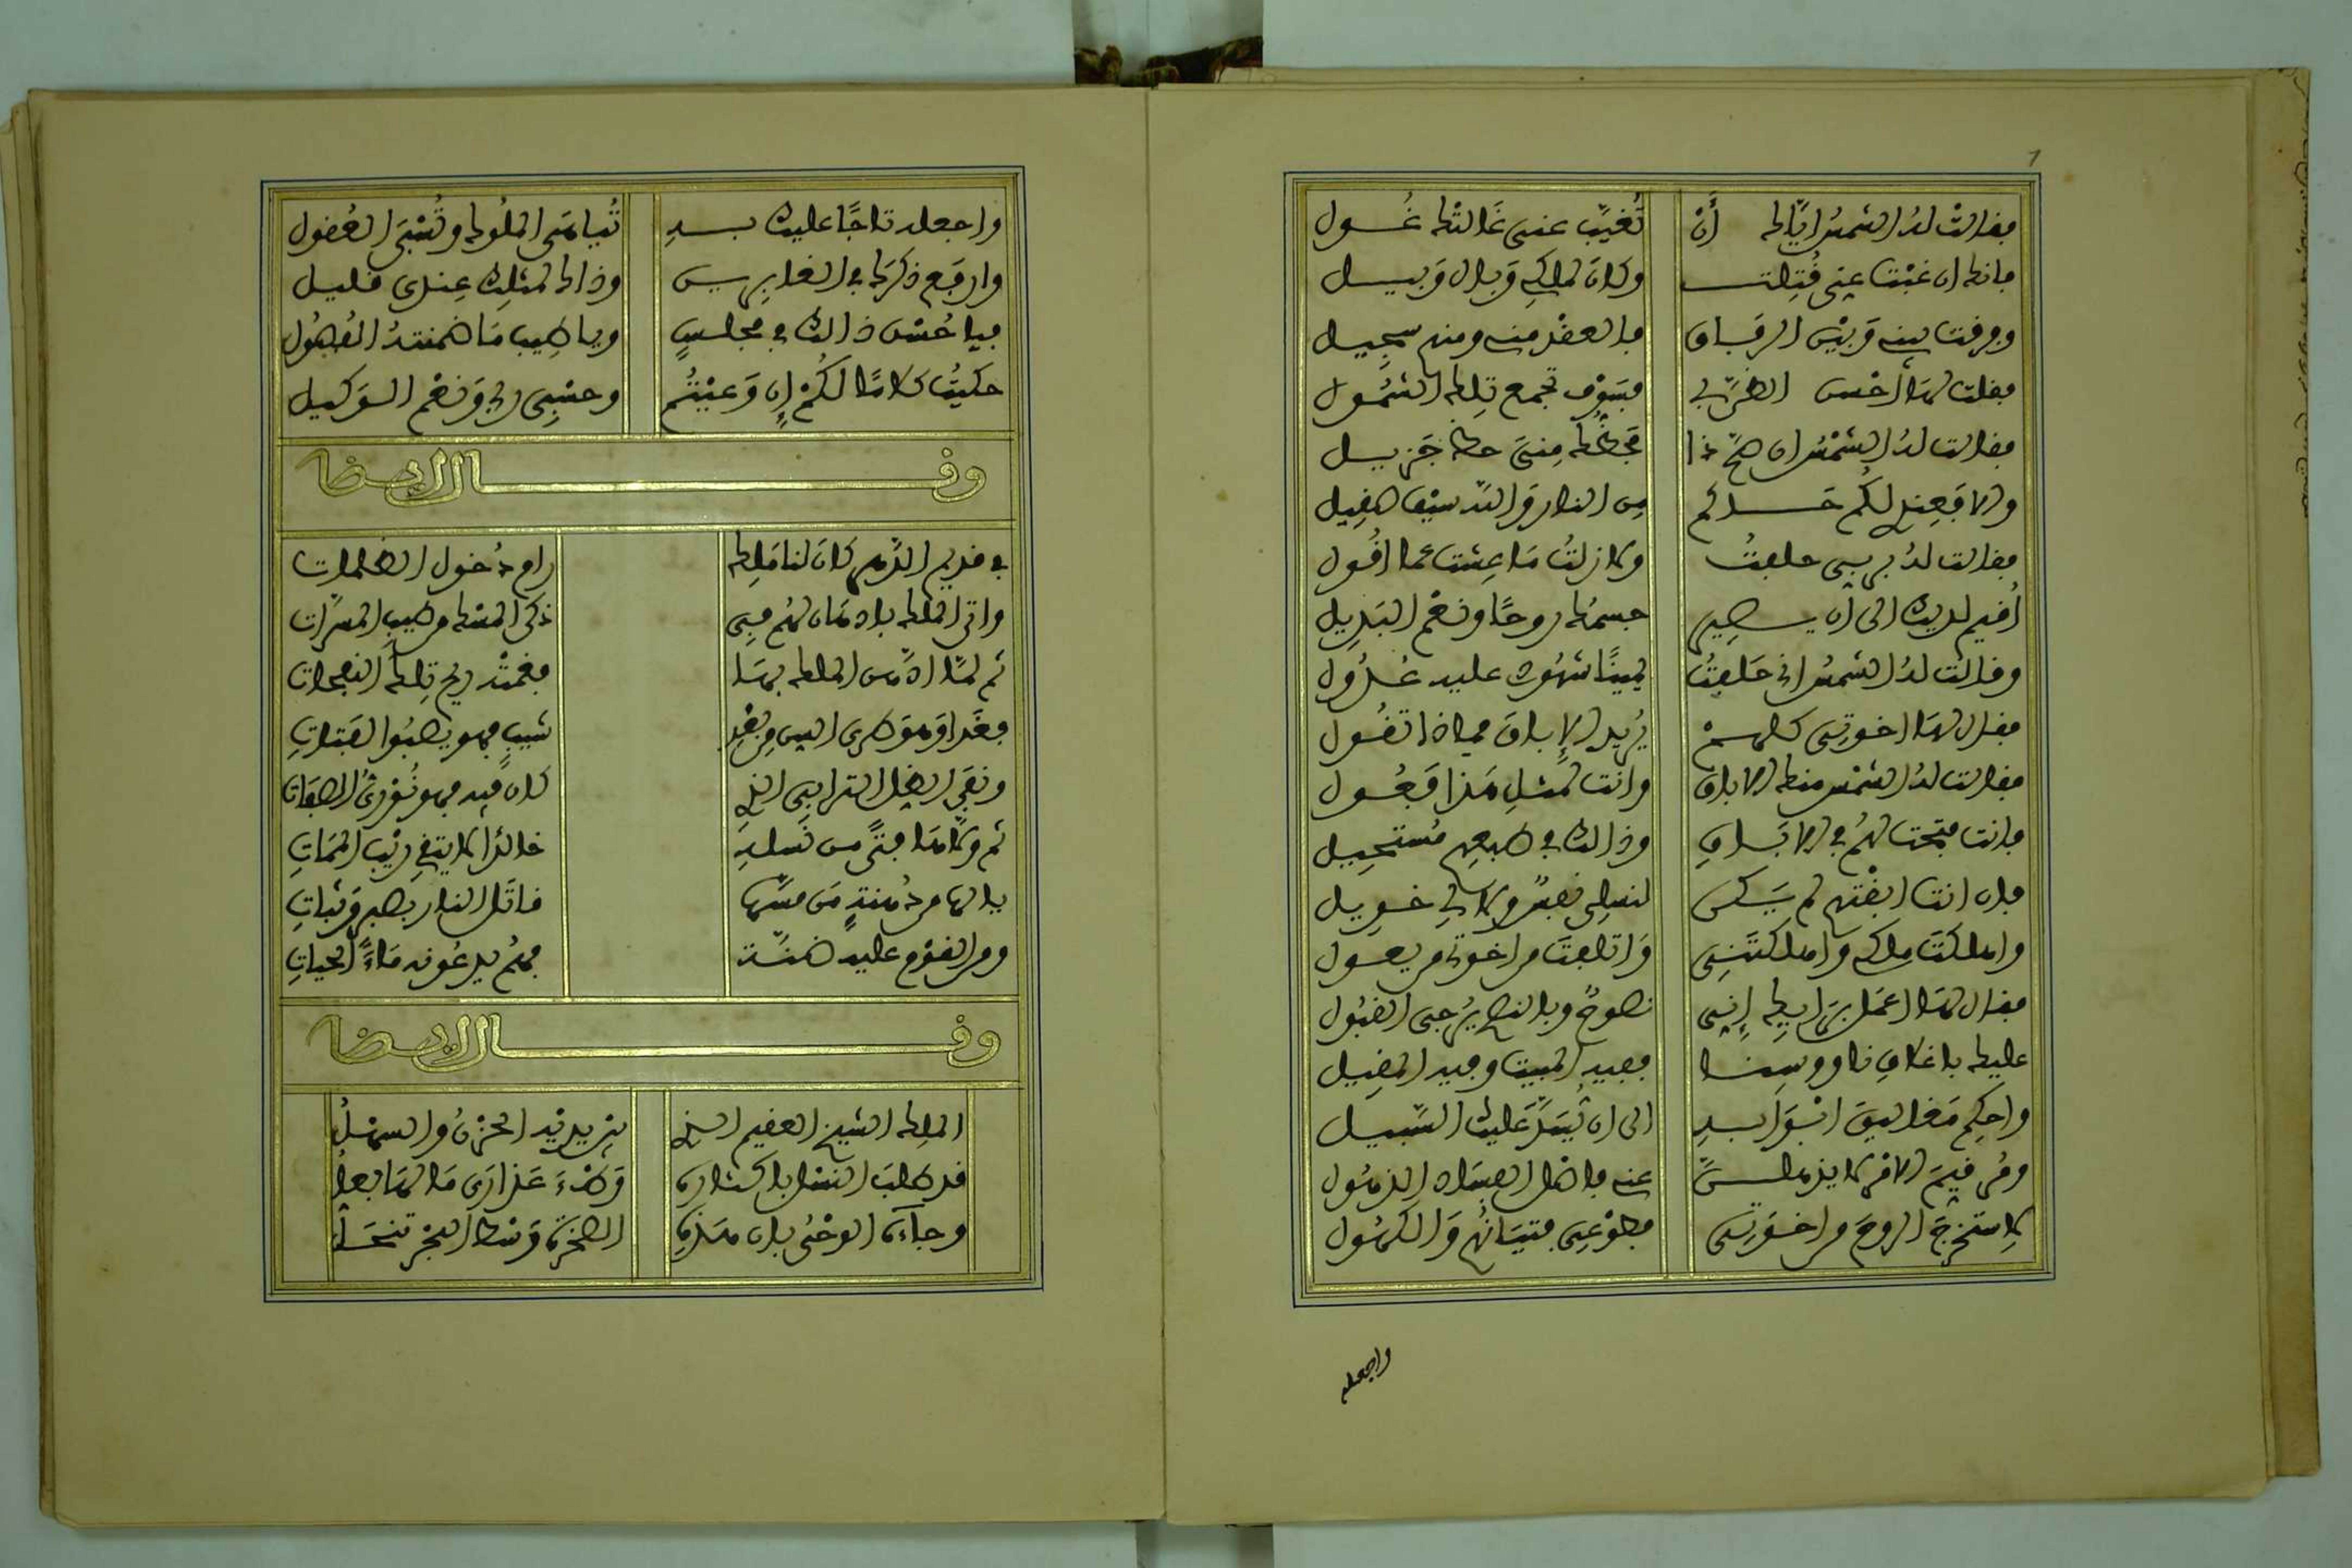 فقالت له الشمس اياك أن تغيّب عني غالتك غُول
فانك ان غبت عني قُتلت وكان لملكي وبال وبيل
وفرقت بينه وبين الرفاق فالعقد منه ومنهم سحيل
فقلت لها أحسن الظن بي فسوف تجمع تلك الشمول
فقالت له الشمس ان صح ذا فحظك مني حظ جزيل
والا فعندي لكم حاكم من النار والله سيف صقيل
فقالت له بربي حلفتُ ولا زلتُ ما عشت عما اقول
أقيم لديك الى أن يصير جسمك روحًا ونعم البديل
وقالت له الشمس اني حلفتُ يمينًا شهودي عليه عدول
فقال لها اخوتي كلهم يُريد الإباق فماذا تقُول
فقالت له الشمس منك الاباق وانت لمثل هذا فعُول
فانت فتحت لهم في الاباق وذالك في طبعهم مستحيل
فان انت ابقتهم لم يكن لنسلي نصير ولا لي خويل
واهلكت ملكي واهلكتني واتلفت من اخوتي من يعول
فقال لها اعملي اليك إنني نصوح وبالنصح يرجى القبول
عليك باغلاق ناووسنا ففيه المبيت وفيه المقيل
واحكم مغاليق ابوابه الى ان تيسر عليك السبيل
ومُر قيم الامر لا يذهلن عنه فاصل الفساد الذهُول
لاستخرج الروح من اخوتي فطوعي فتيانهُم والكهُول
واجعله
واجعله تاجًا عليك به تُباهى الملُوك وتُسبى العقول
وارفع ذكرك في الغابرين وذاك لمثلك عندي قليل
فيا حُسن ذالك في مجلسٍ ويا طيب ما ضمنته الفصُول
حكيتُ كلامًا لكُم إن وعيتُم وحسبي ربي ونعم الوكيل
وقال ايضا
في قديم الدهر كان لنا ملك رام دُخول الظلمات
واتى الملك بادهان لهم في ذكى المسك وطيب المسرّات
ثم لمّا ادّهن الملك بها فغمته ريح تلك النفحات
فغدا وهو طري السن من بعد شيب فهو يصبُوا لفتاتِ
ونقي الثقل الترابي الذي كان فيه فهو نُوريّ الصفات
ثم ولاها فتًى من نسله خالدًا لا يتقي ريب المماتِ
يالها من دُهنةٍ من مسّها قاتل النار بصبر وثباتِ
ومر القوم عليه ضنّة فهُم يدعُونه ماءَ الحياتِ
وقال ايضا
الملك الشيخ العقيم الذي يزيديه الحزنُ والسهلُ
قد طلب النسل باكثاره وطءَ عذارى ما لها بعلُ
وجاءه الوحيُ بان هذه الصخرة وسط البحر تنحلُ